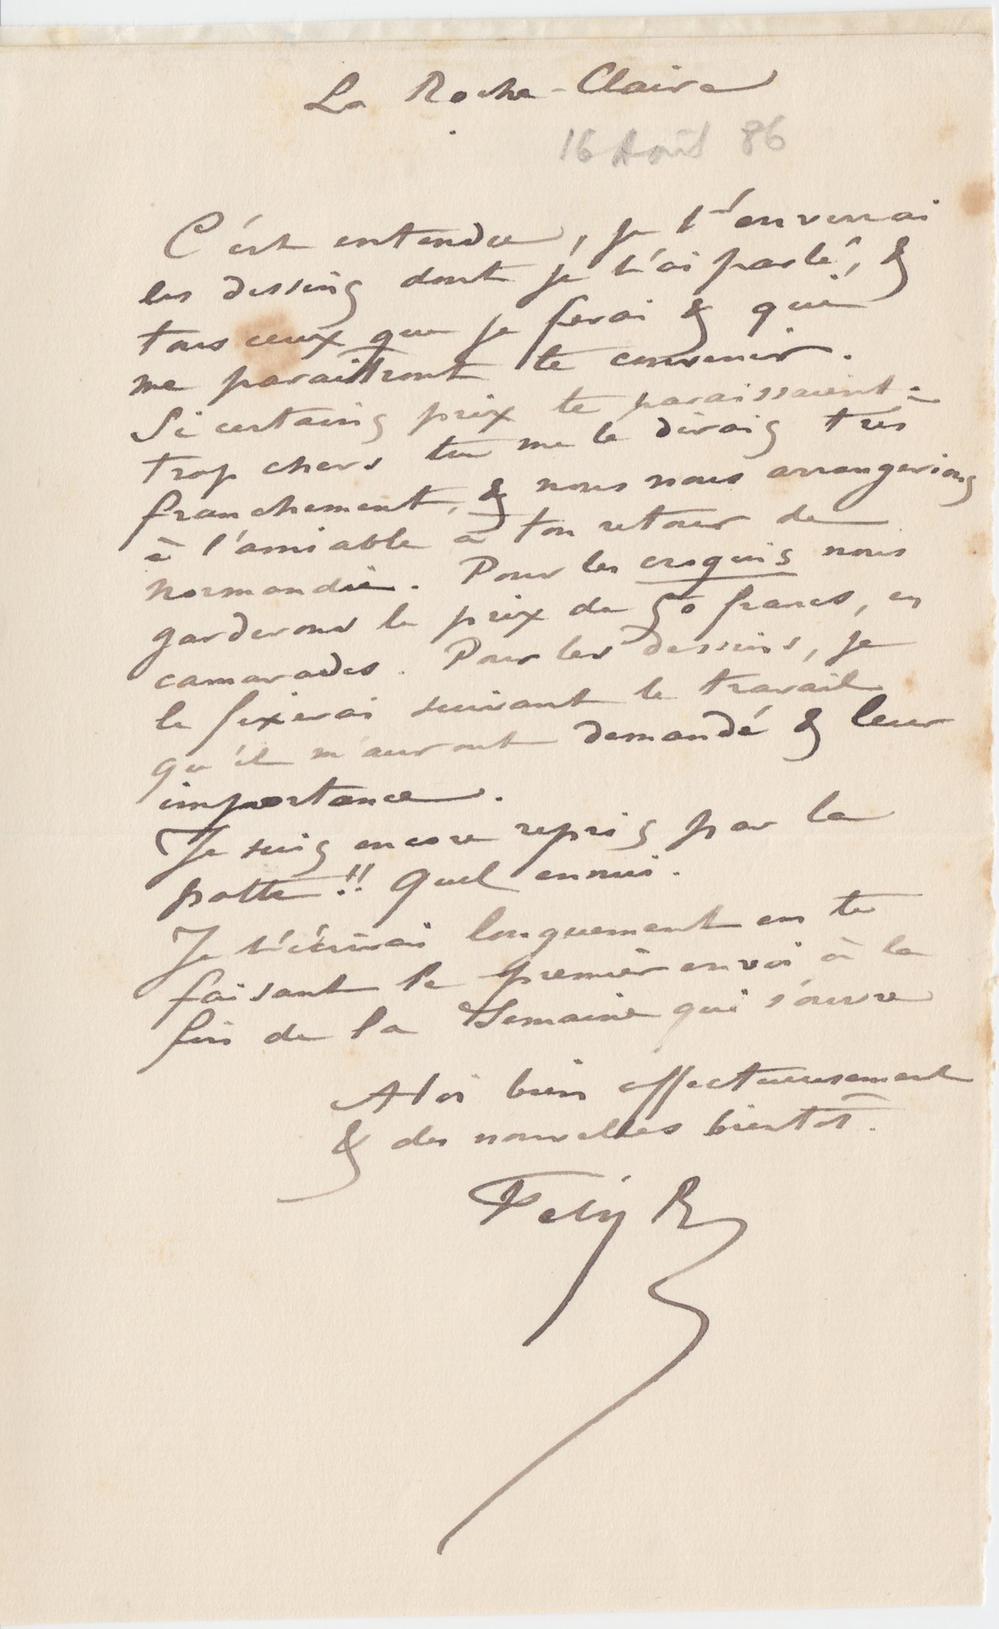 La Roche-Claire
16 Août 86
C'est entendu, je t'enverrai
les dessins dont je t'ai parlé, &
tous ceux que je ferai & qui
me paraîtront te convenir.
Si certains prix te paraissaient
trop chers tu me le dirais très
franchement, & nous nous arrangerions
à l'amiable à ton retour de
Normandie. Pour les croquis nous
garderons le prix de 50 francs, en
camarades. Pour les dessins, je
le fixerai suivant le travail
qu'il m'auront demandé & leur
importance.
Je suis encore repris par la
patte!! Quel ennui.
Je t'écrirai longuement en te
faisant le premier envoi à la
fin de la Semaine qui s'ouvre
A toi bien affectueusement
& des nouvelles bientôt.
Fély R